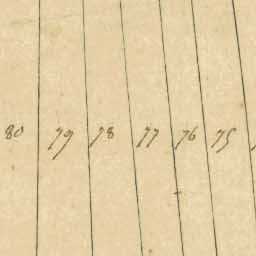 80 79 78 77 76 75